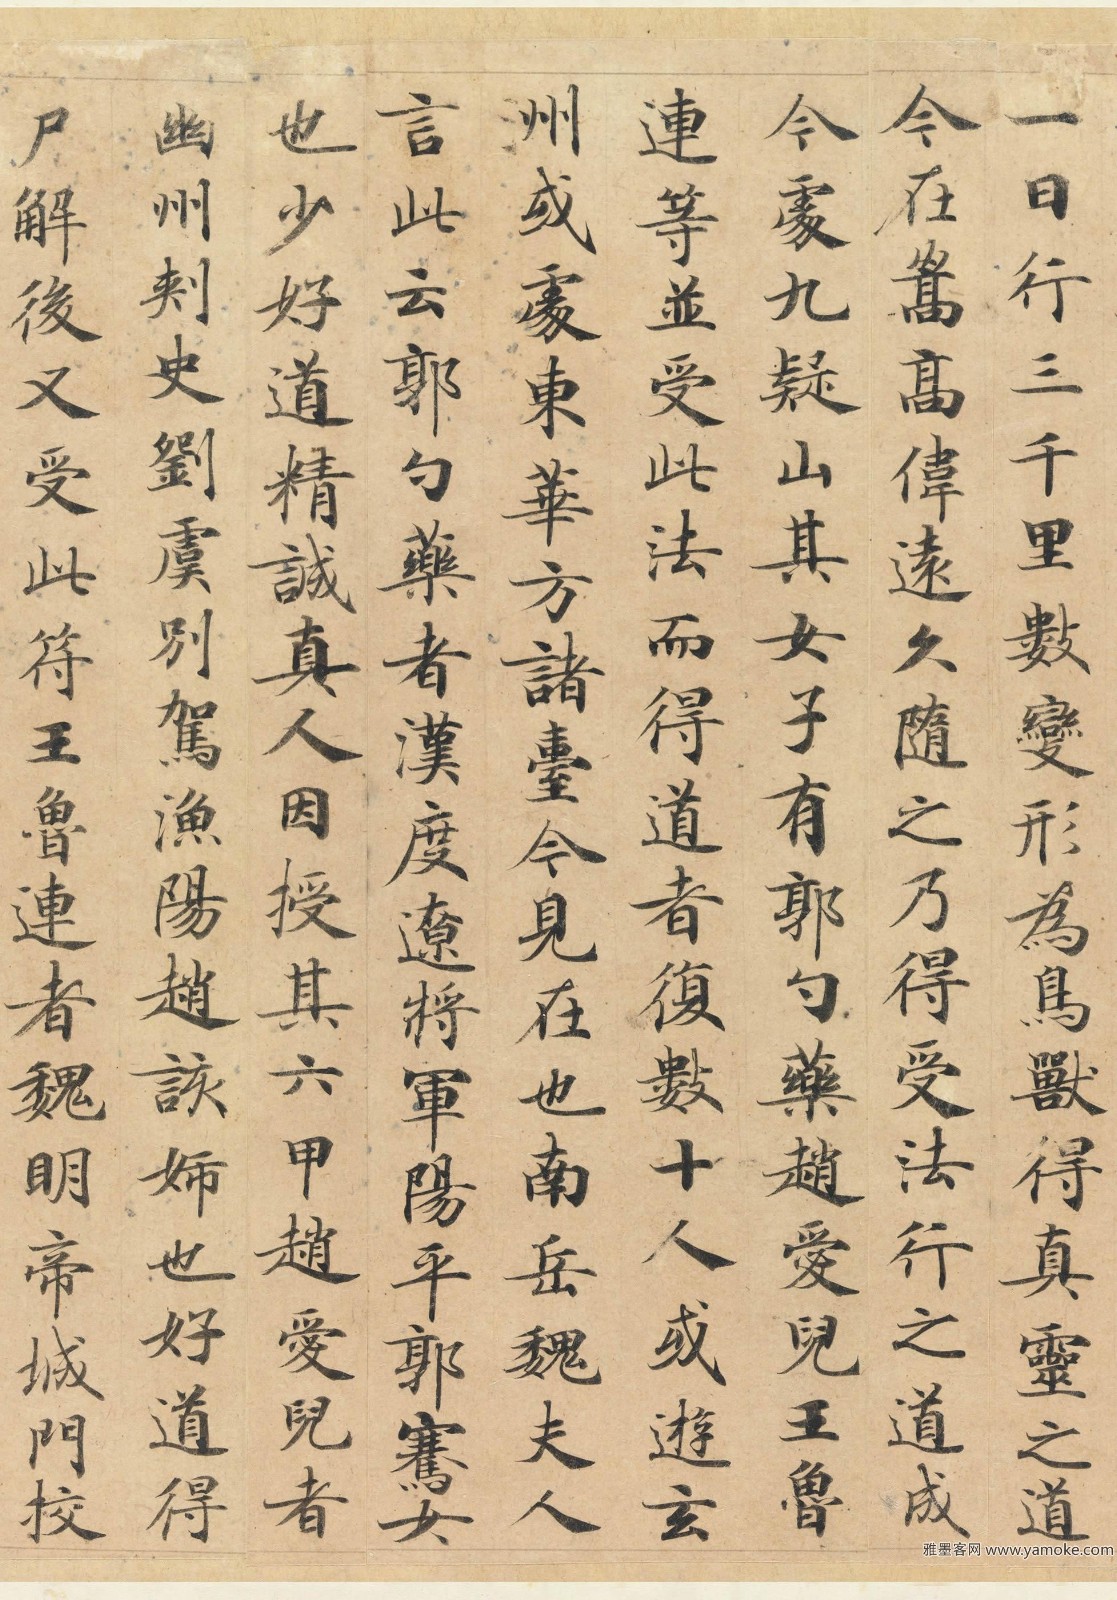 一日行三千里數變形為鳥獸得真靈之道
今在嵩高偉遠久隨之乃得受法行之道成
今處九疑山其女子有郭勺藥趙愛兒王魯
連等並受此法而得道者復數十人或遊玄
州或處東華方諸臺今見在也南岳魏夫人
言此云郭勺藥者漢度遼將軍陽平郭騫女
也少好道精誠真人因授其六甲趙愛兒者
幽州刾史劉虞別駕漁陽趙該姊也好道得
尸解後又受此符王魯連者魏明帝城門校
雅墨客网 www.yamoke.com